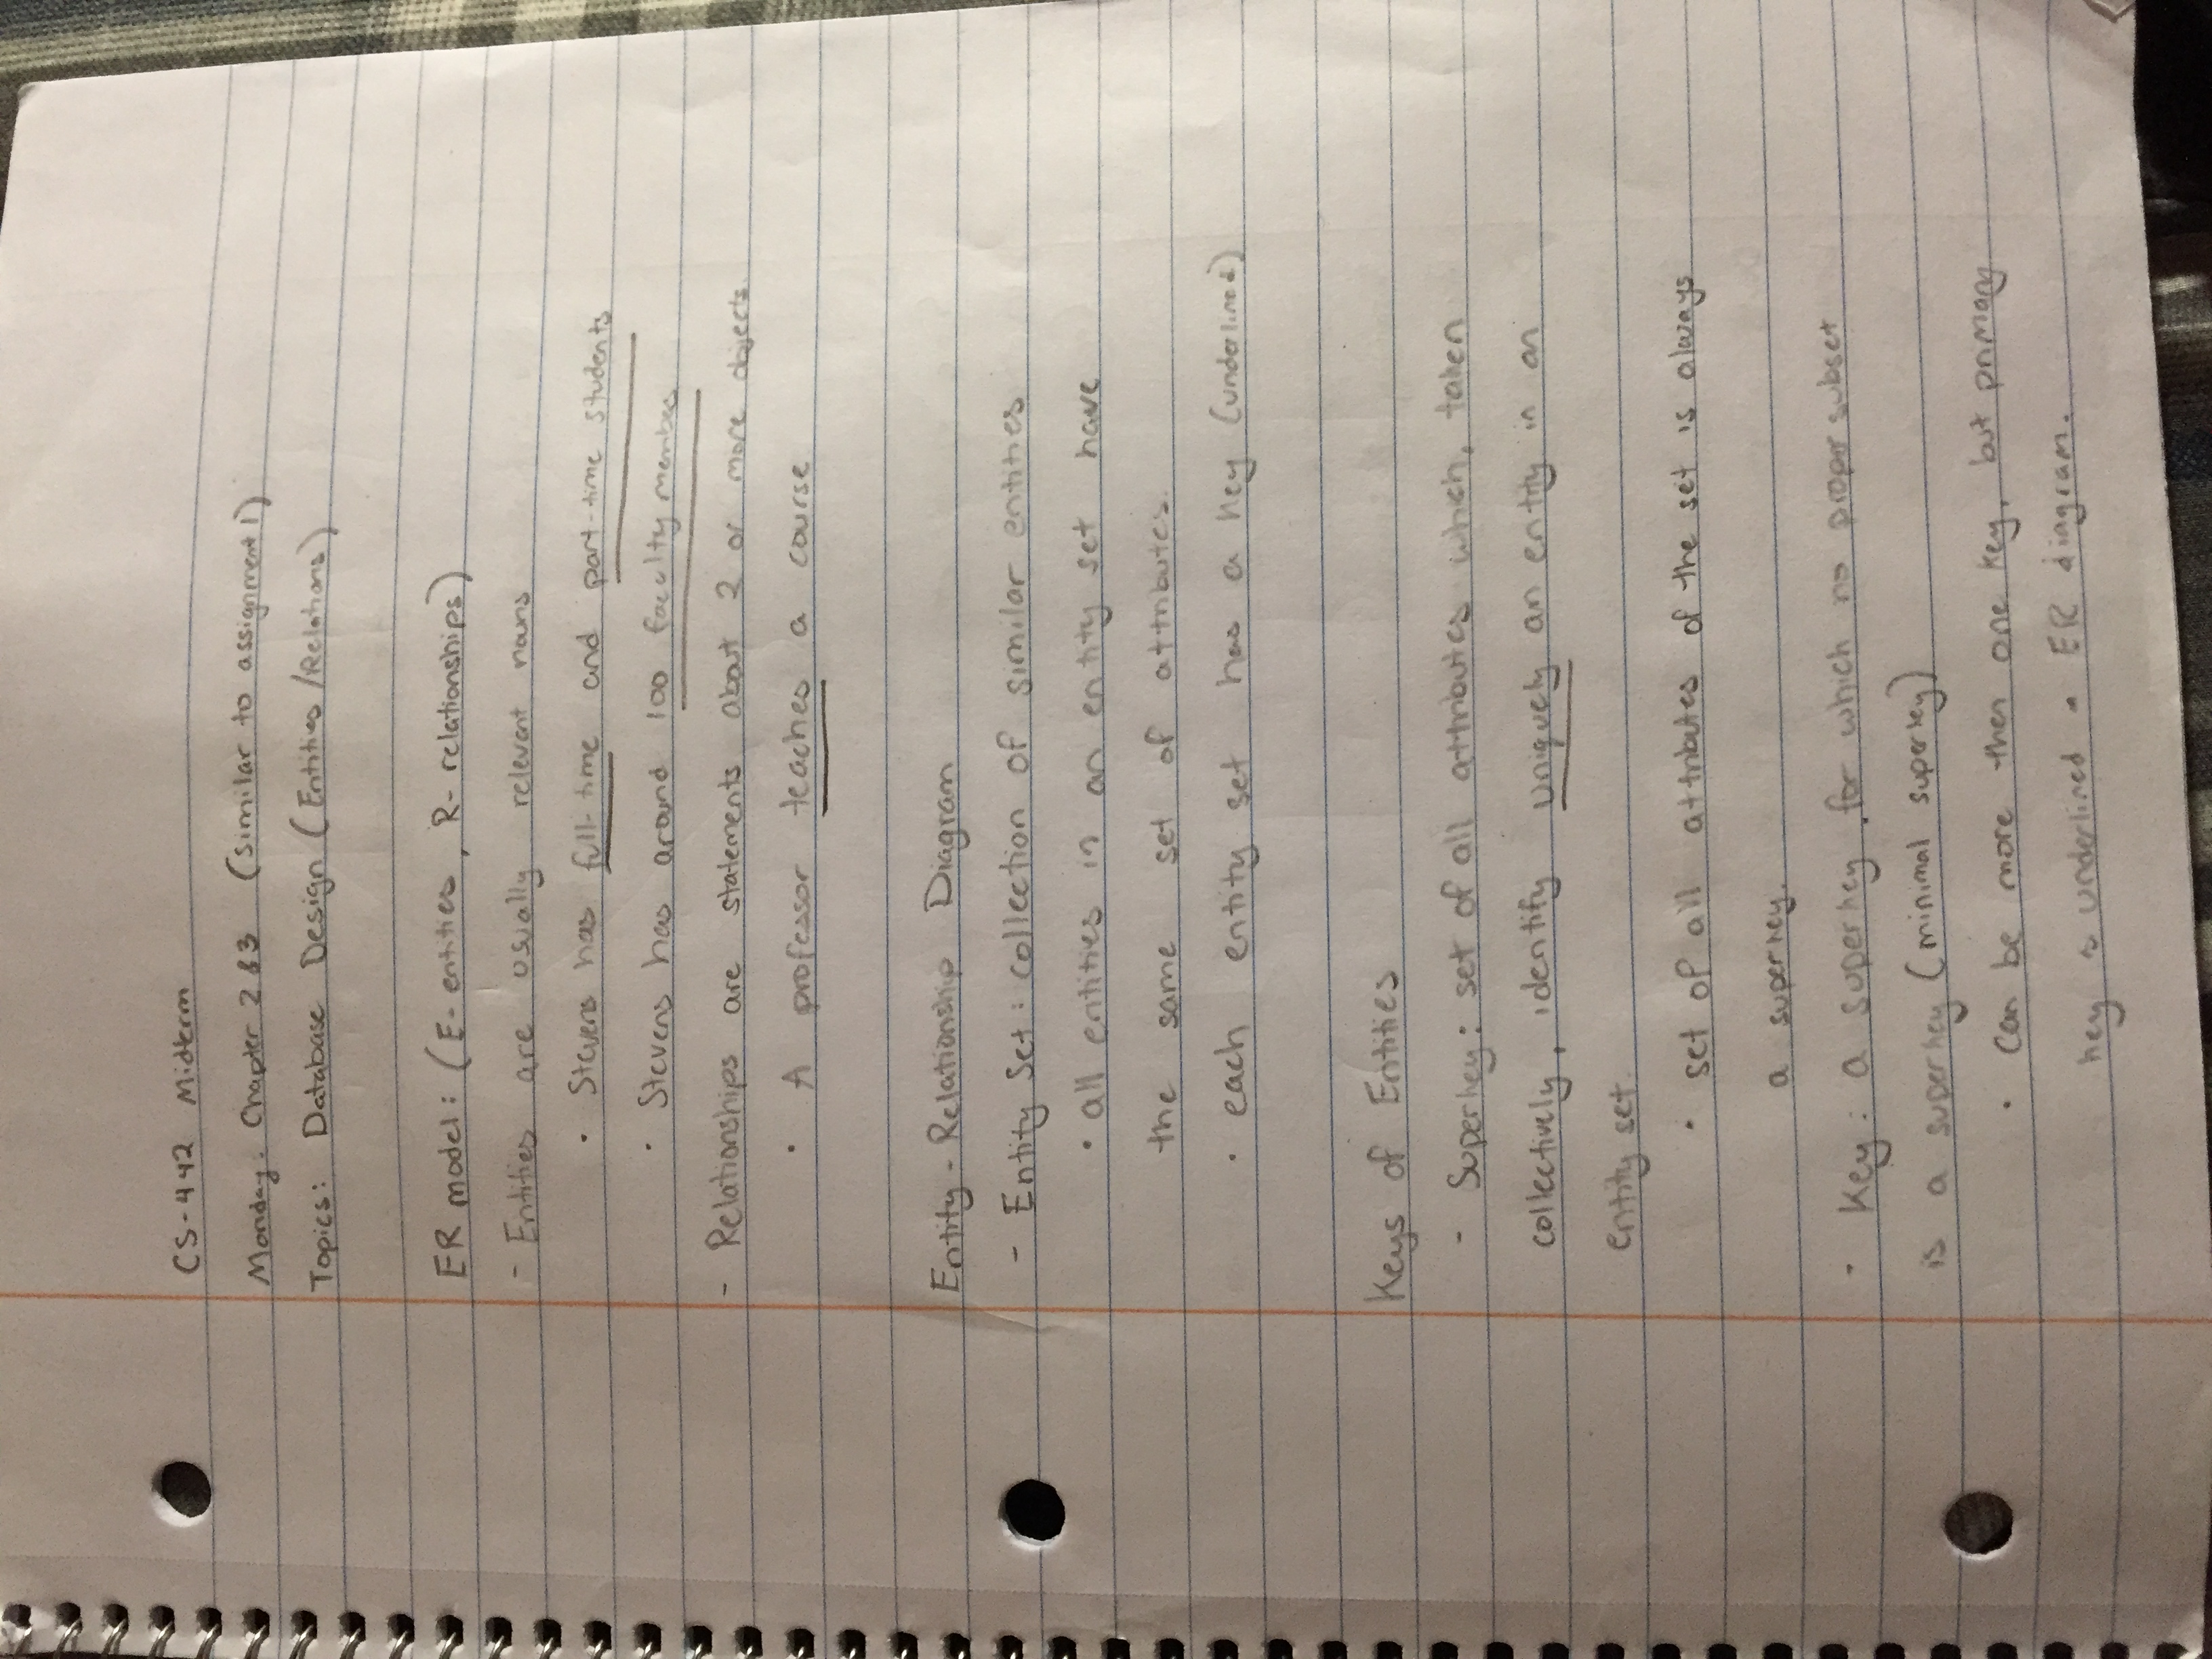 CS-442 Midterm
Monday. Chapter 2 & 3 (similar to assignment 1)
Topics: Database Design (Entities/Relations)
ER model: (E- entities, R- relationships)
- Entities are usually relevant nouns
· Stevens has full-time and part-time students
· Stevens has around 100 faculty members
- Relationships are statements about 2 or more objects.
· A professor teaches a course
Entity-Relationship Diagram
- Entity Set: collection of similar entities
· all entities in an entity set have
the same set of attributes.
· each entity set has a key (underlined)
Keys of Entities
- Superkey: set of all attributes which, taken
collectively, identify uniquely an entity in an
entity set.
· set of all attributes of the set is always
a superkey.
- Key: a superkey for which no proper subset
is a superkey (minimal superkey)
· Can be more then one key, but primary
key is underlined ER diagram.